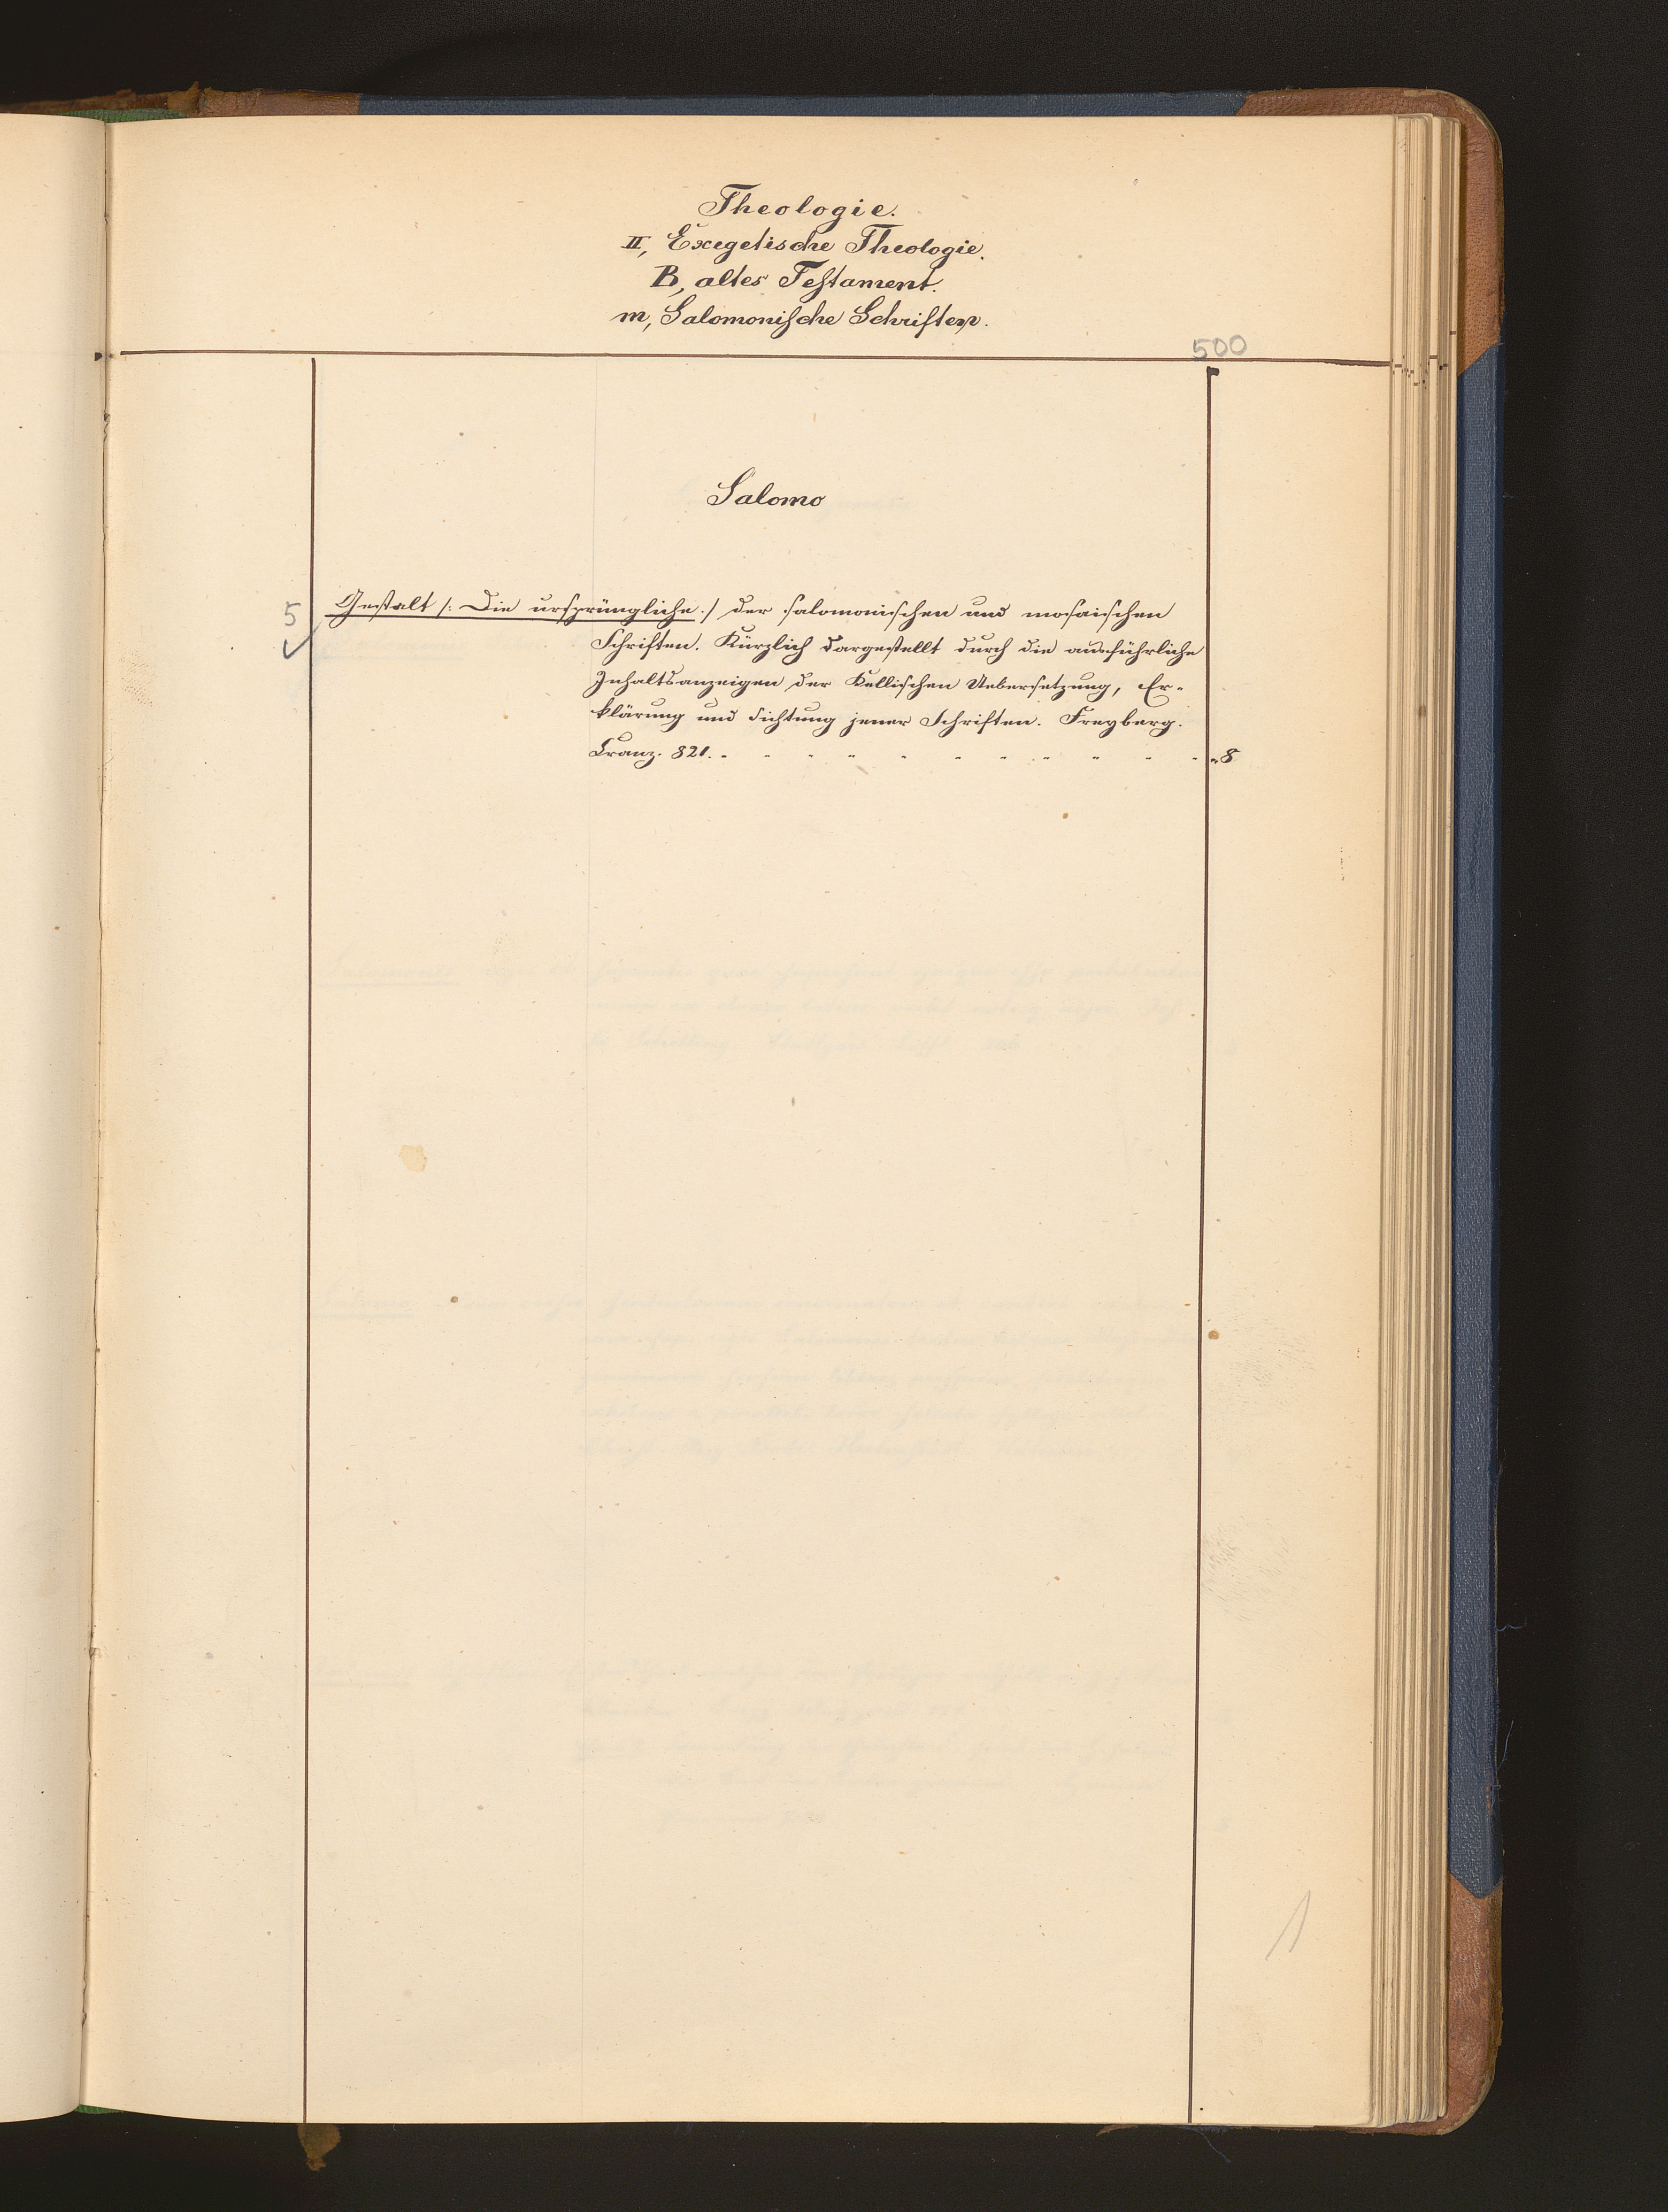 Theologie.
II, Exegetische Theologie.
B, altes Testament.
m, Salomonische Schriften.
500
Salomo
5 Gestalt /: Die ursprüngliche :/ der salomonischen und mosaischen
Schriften. Kürzlich dargestellt durch die ausführliche
Inhaltsanzeigen der Kellischen Uebersetzung, Er-
klärung und Sichtung jener Schriften. Freyberg.
Cranz. 821. " " " " " " " " " " " " 8
1